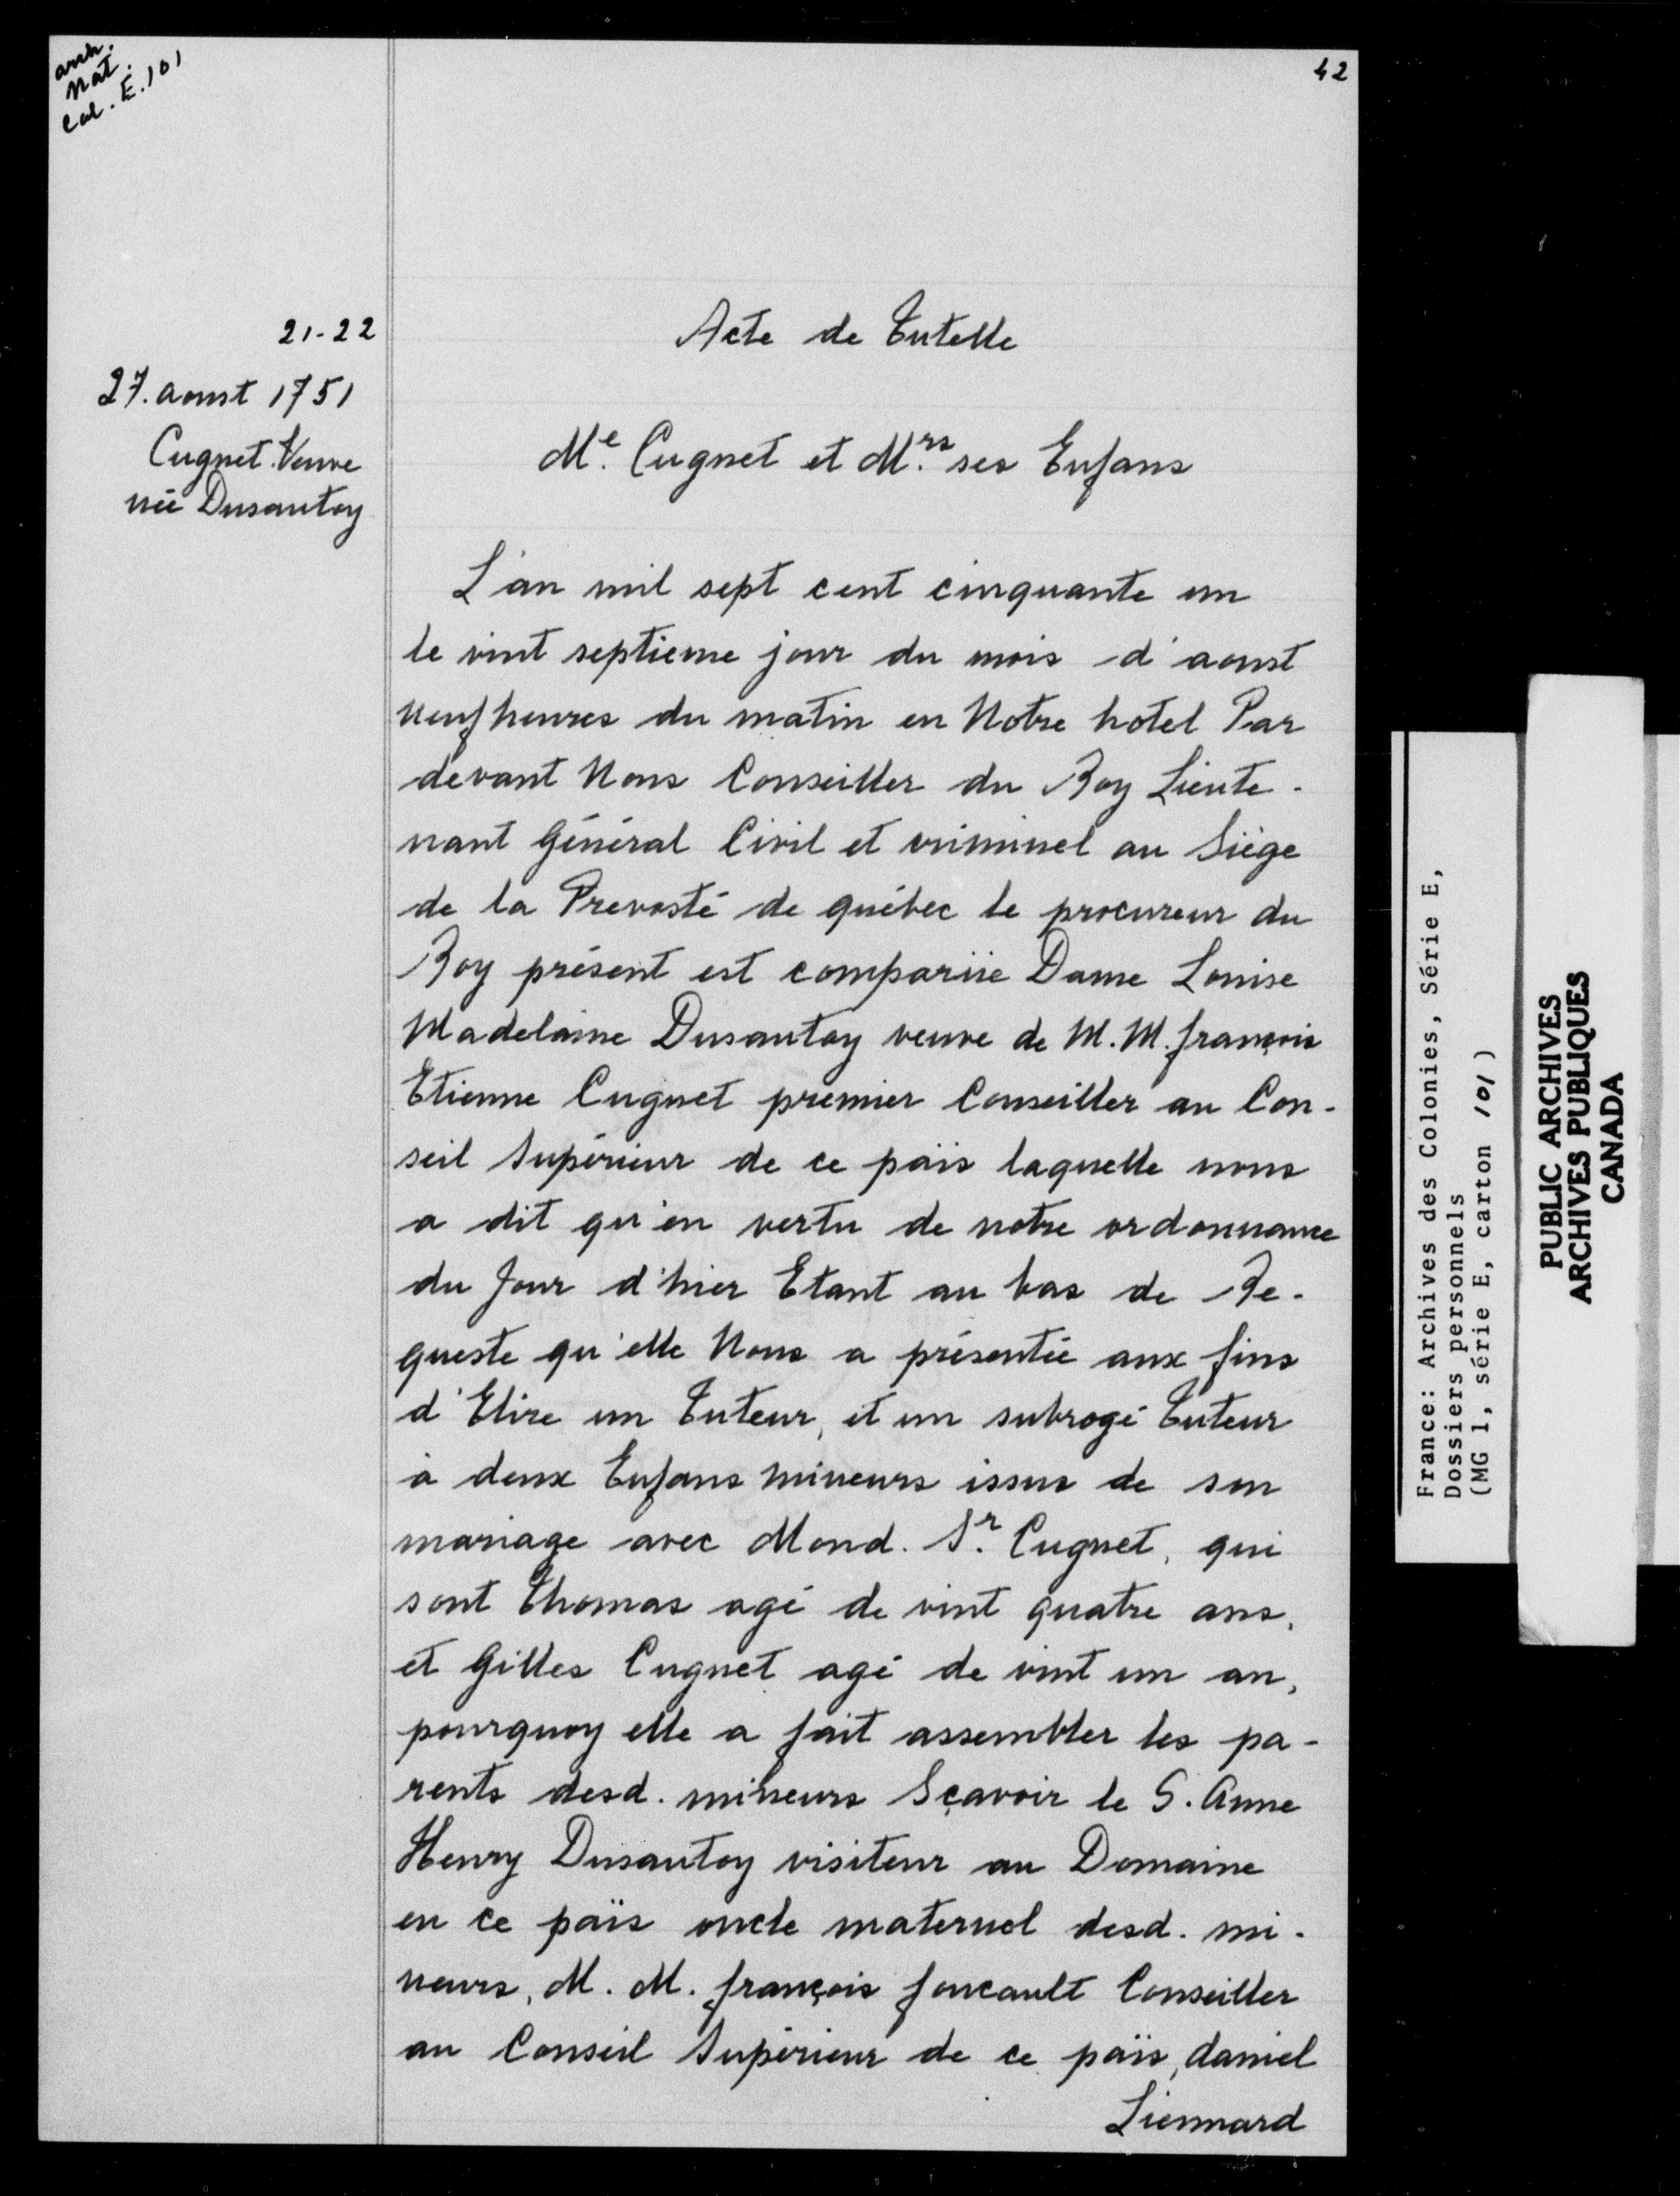 arch.
nat.
Col. E. 101
42
21-22
27. aoust 1751
Cugnet. Veuve
née Dusautoy
Acte de Tutelle
Me. Cugnet et Mrs. ses Enfans
L'an mil sept cent cinquante un
le vint septieme jour du mois d'aoust
neuf heures du matin en Notre hotel Par
devant Nous Conseiller du Roy Lieute-
nant Général Civil et criminel au Siège
de la Prevosté de québec le procureur du
Roy présent est comparüe Dame Louise
Madelaine Dusautoy veuve de M. M. françois
Etienne Cugnet premier Conseiller au Con-
seil Supérieur de ce païs laquelle nous
a dit qu'en vertu de notre ordonnance
du Jour d'hier Etant au bas de Re-
queste qu'elle Nous a présentée aux fins
d'Elire un Tuteur, et un subrogé Tuteur
à deux Enfans mineurs issus de son
mariage avec Mond. Sr. Cugnet, qui
sont Thomas agé de vint quatre ans,
et Gilles Cugnet agé de vint un an,
pourquoy elle a fait assembler les pa-
rents desd. mineurs Sçavoir le S. Anne
Henry Dusautoy visiteur au Domaine
en ce païs oncle maternel desd. mi-
neurs, M. M. françois foucault Conseiller
au Conseil Supérieur de ce païs, daniel
Lienmard
France: Archives des Colonies, Série E,
Dossiers personnels
(MG 1, série E, carton 101)
PUBLIC ARCHIVES
ARCHIVES PUBLIQUES
CANADA